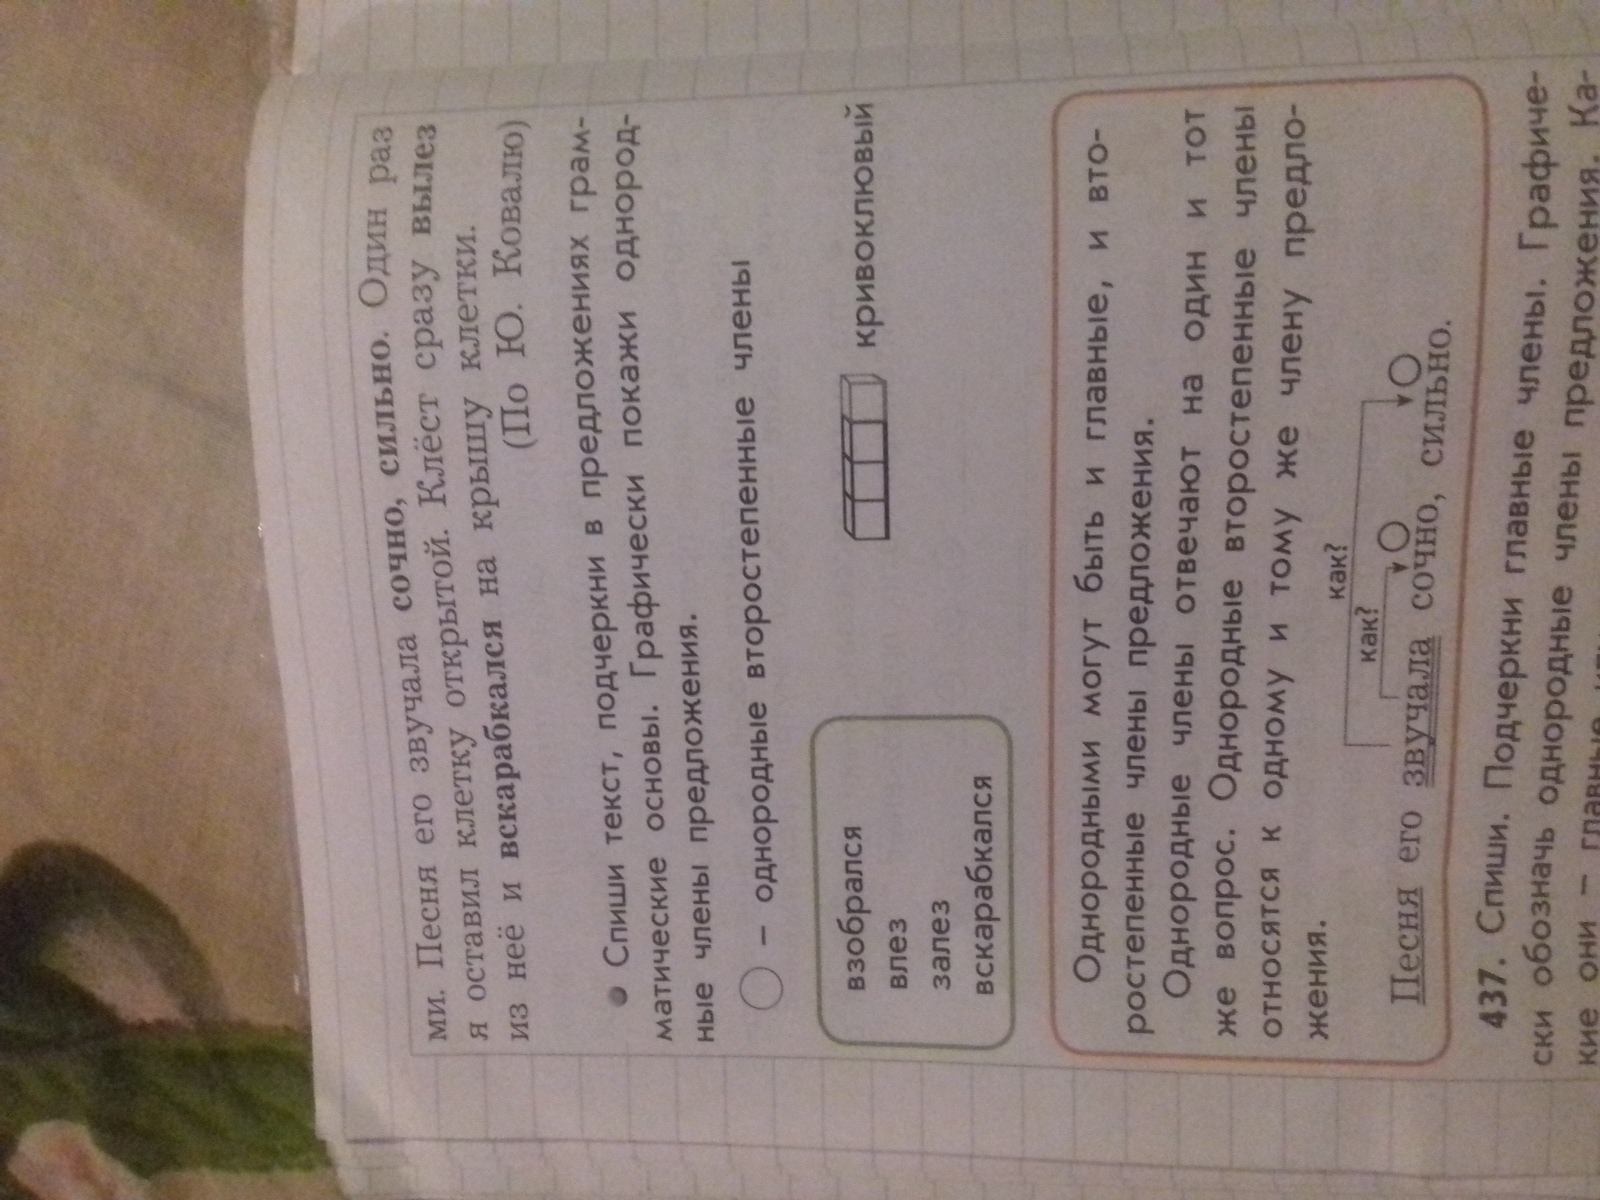 ми. Песня его звучала сочно, сильно. Один раз
я оставил клетку открытой. Клёст сразу вылез
из неё и вскарабкался на крышу клетки.
(По Ю. Ковалю)
Спиши текст, подчеркни в предложениях грам-
матические основы. Графически покажи однород-
ные члены предложения.
– однородные второстепенные члены
взобрался
влез
залез
вскарабкался
кривоклювый
Однородными могут быть и главные, и вто-
ростепенные члены предложения.
Однородные члены отвечают на один и тот
же вопрос. Однородные второстепенные члены
относятся к одному и тому же члену предло-
жения.
как?
как?
Песня его звучала сочно, сильно.
437. Спиши. Подчеркни главные члены. Графиче-
ски обозначь однородные члены предложения. Ка-
кие они – главные